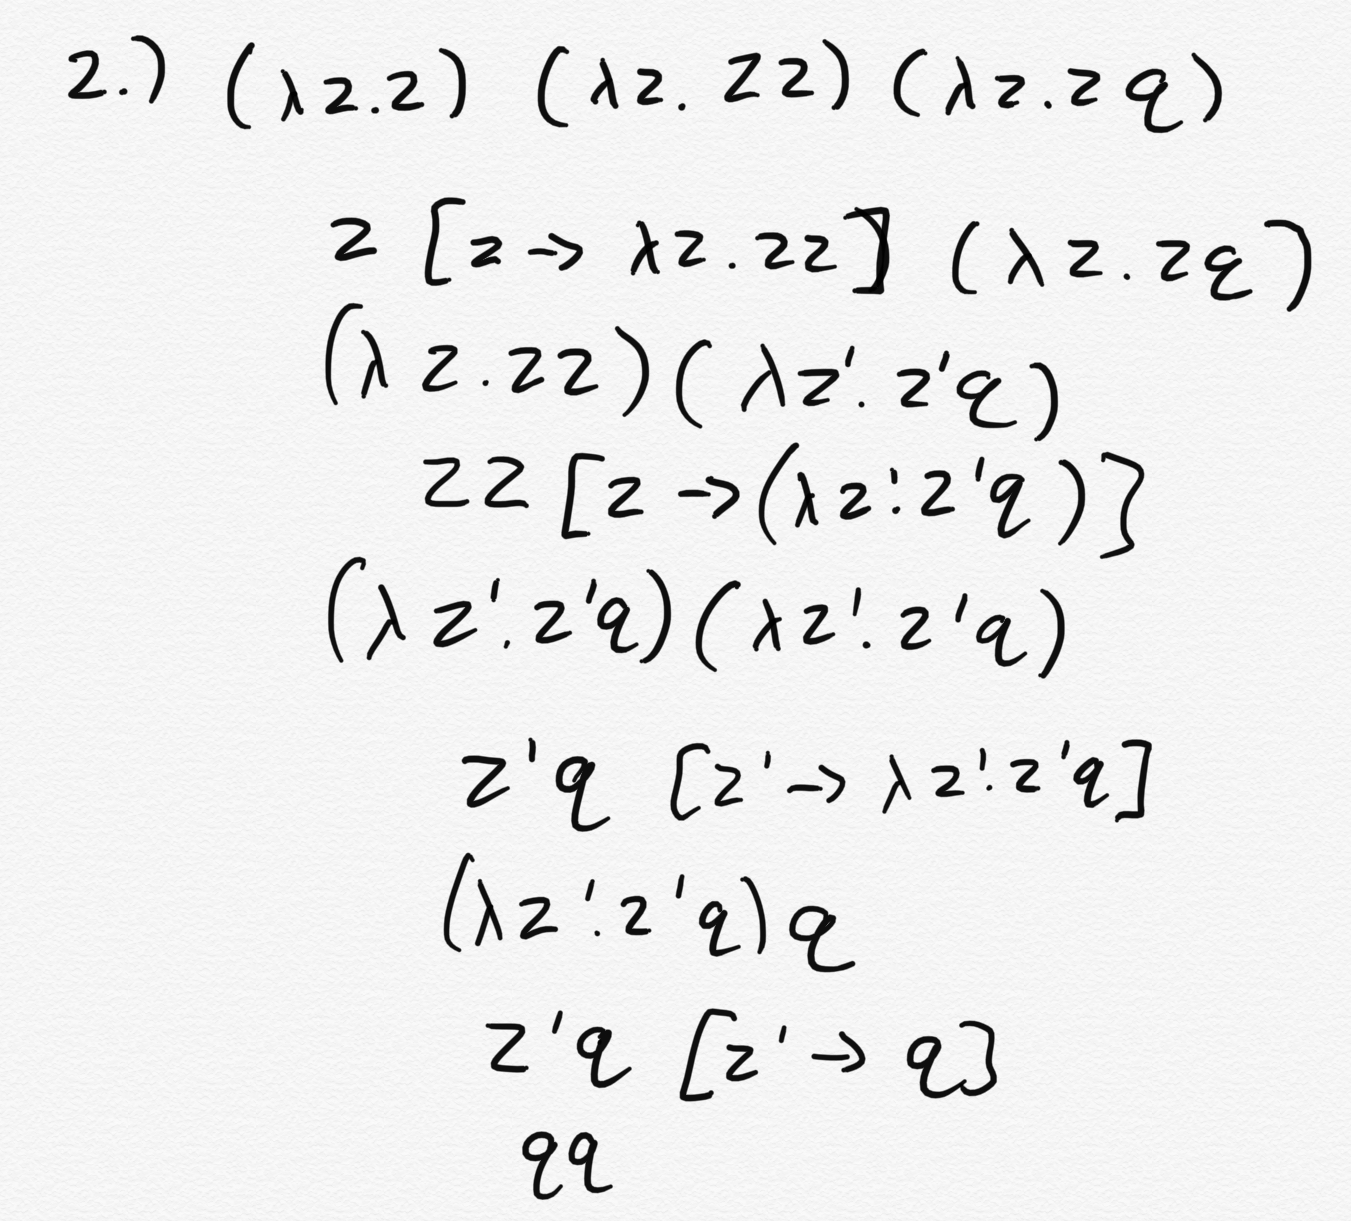 2.) (λz.z) (λz. zz) (λz.zq)
z [z → λz.zz] (λz.zq)
(λz.zz)(λz'.z'q)
zz[z →(λz'.z'q)]
(λz'.z'q)(λz'.z'q)
z'q [z' → λz'.z'q]
(λz'.z'q)q
z'q [z' → q]
qq